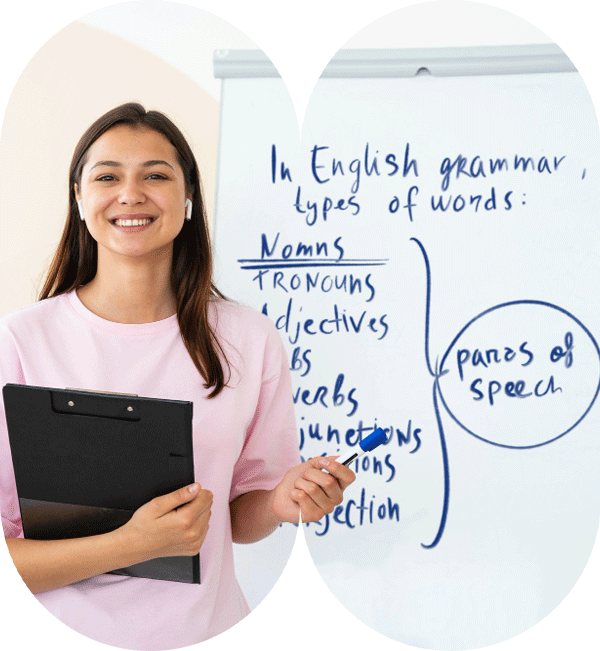 In English grammar,
types of words:
Nouns
PRONOUNS
Adjectives
bs
verbs
junctions
sitions
jection
parts of
speech